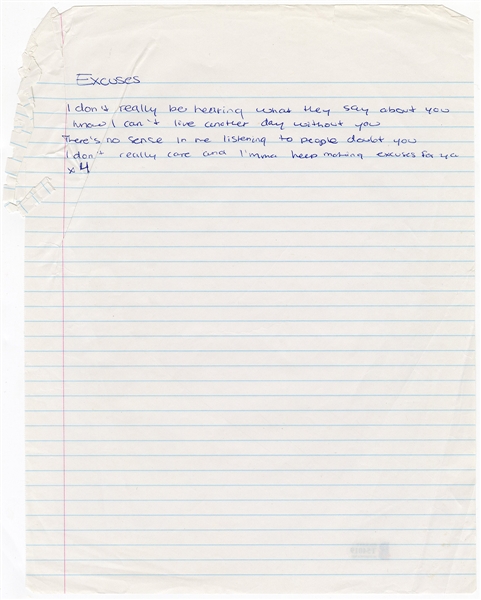 Excuses
I don't really be hearing what they say about you
know I can't live another day without you
There's no sense in me listening to people doubt you
I don't really care and I'mma keep making excuses for ya
x 4